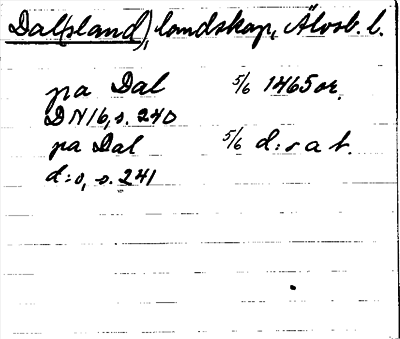 Dal(sland), landskap, Älvsb. l.
pa Dal 5/6 1465 or.
DN 16, s. 240
pa Dal 5/6 d:o a t.
d:o, s. 241